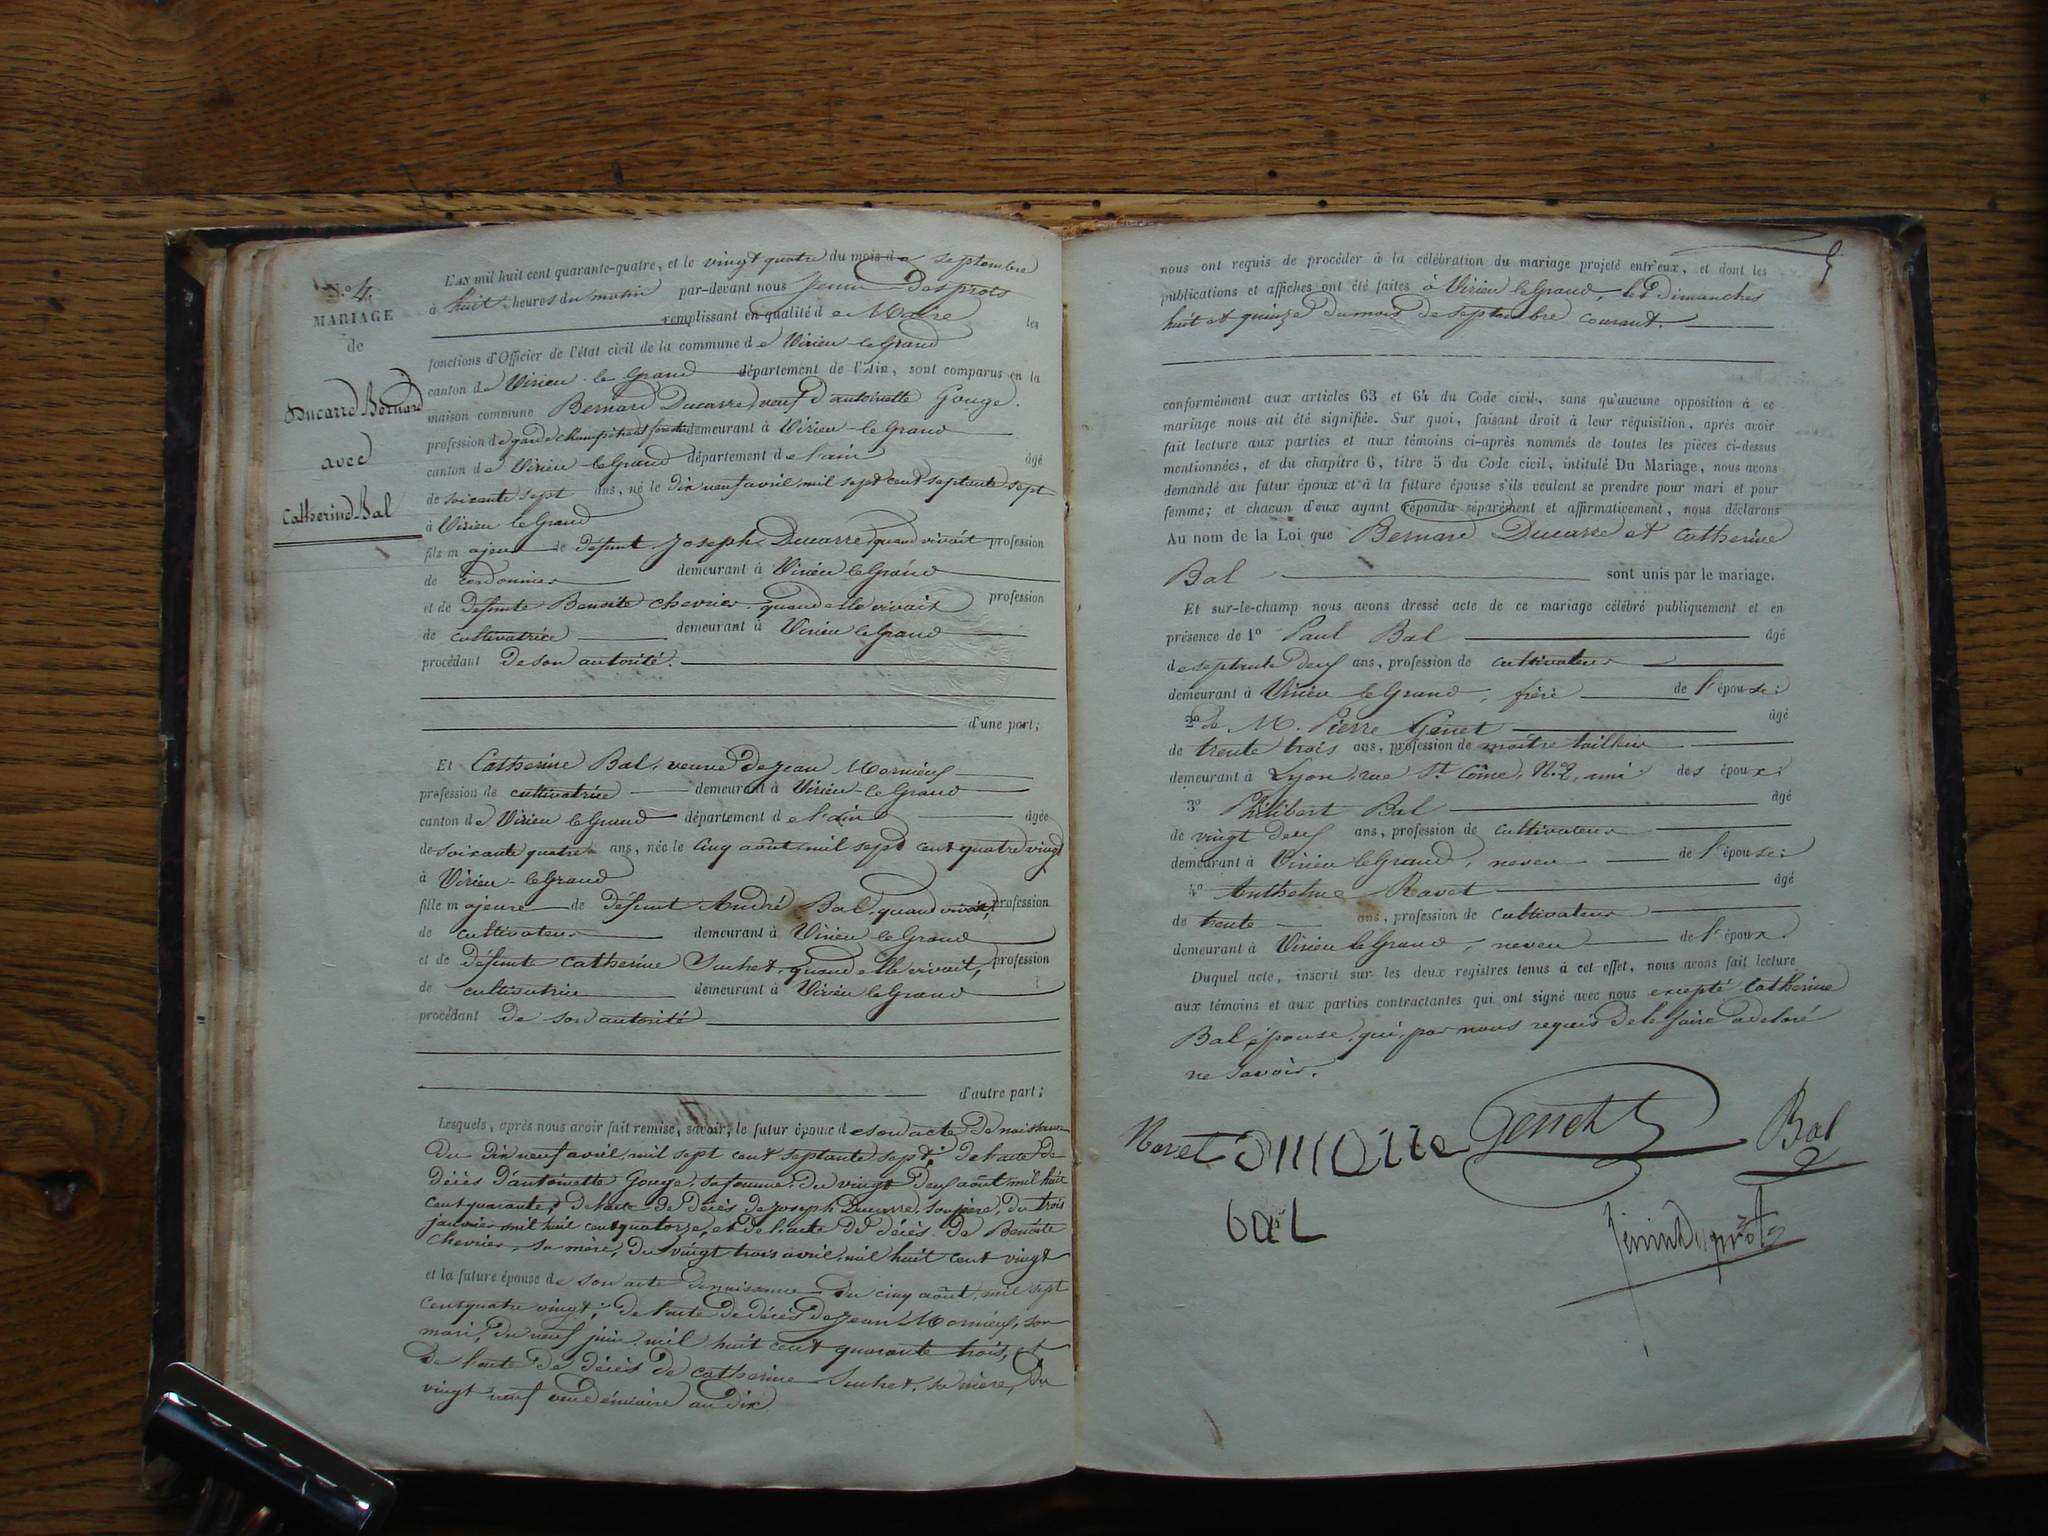 N.º 4.
MARIAGE
de
Ducarre Bernard
avec
Catherine Bal
L'AN mil huit cent quarante-quatre, et le vingt quatre du mois de septembre
à huit heures du matin par-devant nous Jenin Desprots
remplissant en qualité de Maire les
fonctions d'Officier de l'état civil de la commune de Virieu-le-Grand
canton de Virieu-le-Grand département de l'Ain, sont comparus en la
maison commune Bernard Ducarre, veuf d'antoinette Gouge.
profession de garde champêtre et forestier demeurant à Virieu-le-Grand
canton de Virieu-le-Grand département de l'ain âgé
de soixante sept ans, né le dix neuf avril, mil sept cent septante sept
à Virieu le Grand
fils majeur de défunt Joseph Ducarre, quand vivait profession
de cordonnier demeurant à Virieu le Grand
et de défunte Benoite Chevrier quand elle vivait profession
de cultivatrice demeurant à Virieu le Grand
procédant de son autorité.
d'une part;
Et Catherine Bal, veuve de Jean Mornieux
profession de cultivatrice demeurant à Virieu-le-Grand
canton de Virieu le Grand département de l'ain âgée
de soixante quatre ans, née le cinq août, mil sept cent quatre vingt
à Virieu-le-Grand
fille majeure de défunt André Bal, quand vivait, profession
de cultivateur demeurant à Virieu le Grand
et de défunte Catherine Suchet, quand elle vivait, profession
de cultivatrice demeurant à Virieu le Grand
procédant de son autorité
d'autre part;
Lesquels, après nous avoir fait remise, savoir, le futur époux de son acte de naissance
du dix neuf avril, mil sept cent septante sept; de l'acte de
décès d'antoinette Gouge, sa femme, du vingt deux août, mil huit
cent quarante; de l'acte de décès de Joseph Ducarre, son père, du trois
janvier mil huit cent quatorze, et de l'acte de décès de Benoite
Chevrier, sa mère, du vingt trois avril, mil huit cent vingt
et la future épouse de son acte de naissance du cinq août, mil sept
cent quatre vingt; de l'acte de décès de Jean Mornieux, son
mari, du neuf juin, mil huit cent quarante trois, et
de l'acte de décès de Catherine Suchet, sa mère, du
vingt neuf vendémiaire an dix.
5
nous ont requis de procéder à la célébration du mariage projeté entr'eux, et dont les
publications et affiches ont été faites à Virieu le Grand, les dimanches
huit et quinze du mois de septembre courant.
conformément aux articles 63 et 64 du Code civil, sans qu'aucune opposition à ce
mariage nous ait été signifiée. Sur quoi, faisant droit à leur réquisition, après avoir
fait lecture aux parties et aux témoins ci-après nommés de toutes les pièces ci-dessus
mentionnées, et du chapitre 6, titre 5 du Code civil, intitulé Du Mariage, nous avons
demandé au futur époux et à la future épouse s'ils veulent se prendre pour mari et pour
femme; et chacun d'eux ayant répondu séparément et affirmativement, nous déclarons
Au nom de la Loi que Bernard Ducarre et Catherine
Bal sont unis par le mariage.
Et sur-le-champ nous avons dressé acte de ce mariage célébré publiquement et en
présence de 1º Paul Bal âgé
de septante deux ans, profession de cultivateur
demeurant à Virieu le Grand, frère de l'épouse;
2º de M. Pierre Genet âgé
de trente trois ans, profession de maître tailleur
demeurant à Lyon, rue St Côme, N.2, ami des époux;
3º Philibert Bal âgé
de vingt deux ans, profession de cultivateur
demeurant à Virieu le Grand, neveu de l'épouse;
4º Anthelme Ravet âgé
de trente ans, profession de cultivateur
demeurant à Virieu le Grand, neveu de l'époux.
Duquel acte, inscrit sur les deux registres tenus à cet effet, nous avons fait lecture
aux témoins et aux parties contractantes qui ont signé avec nous excepté Catherine
Bal, épouse, qui, par nous requis de le faire a déclaré
ne savoir.
Ravet Genet Bal
bal